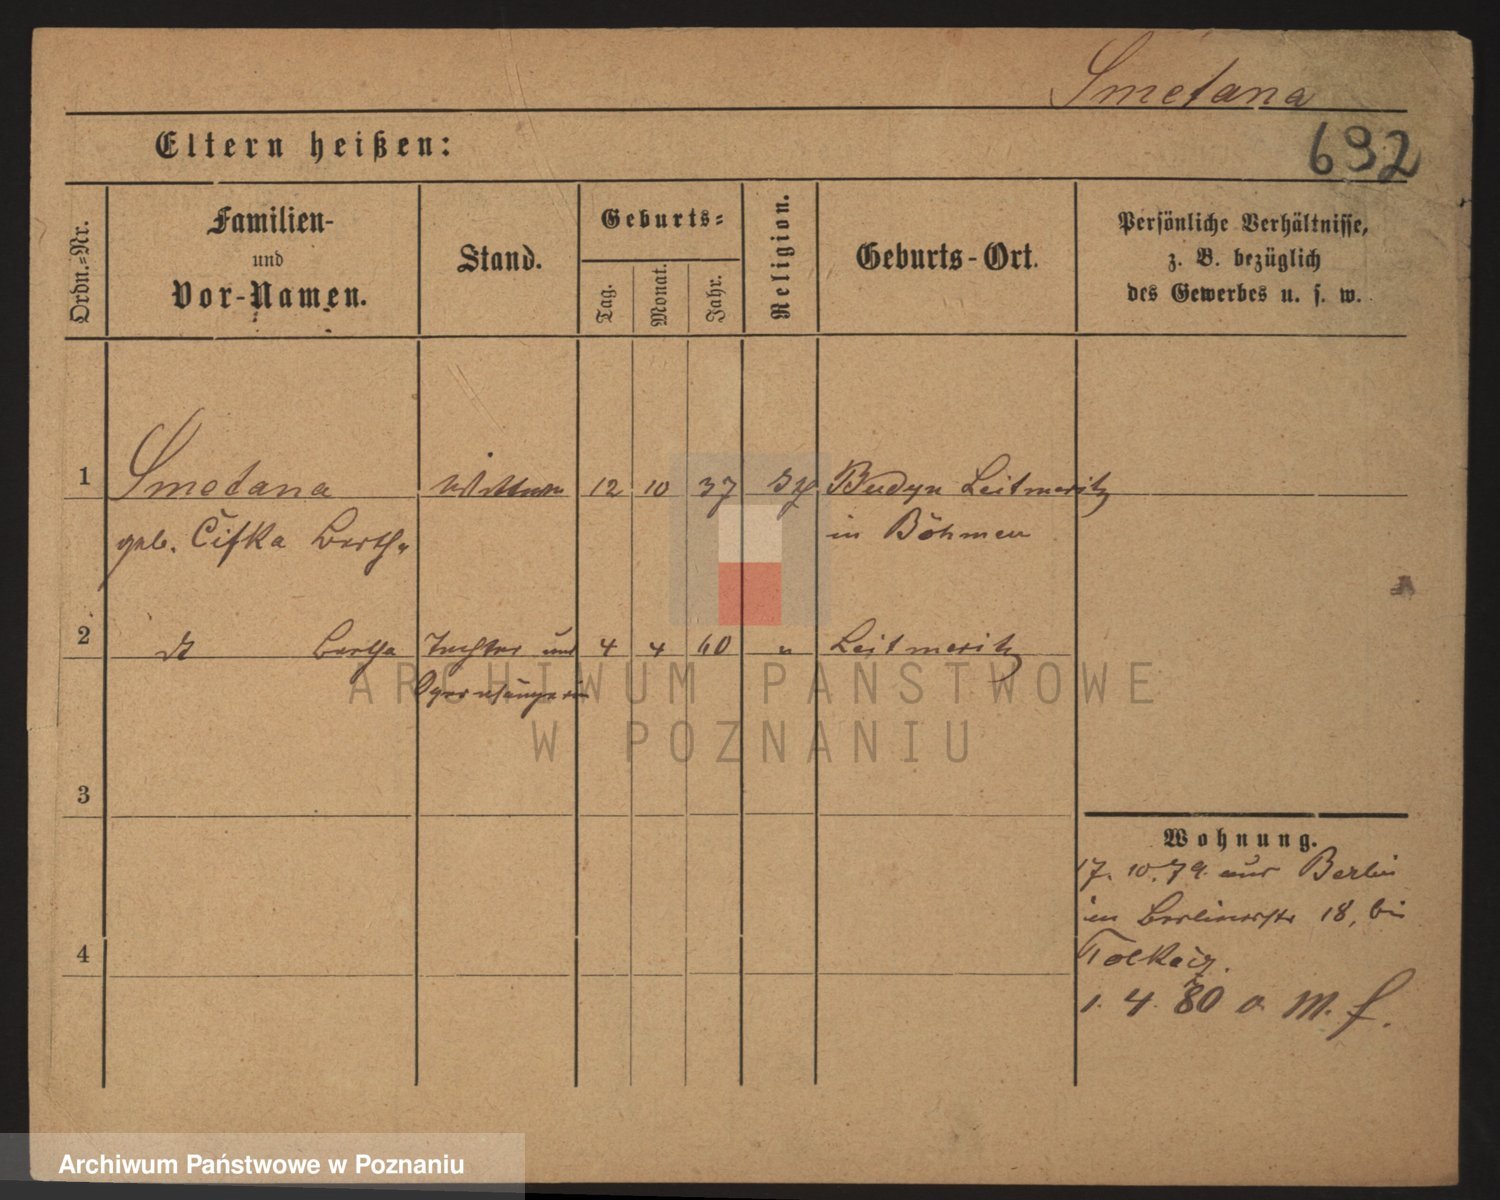 Smetana
Eltern heißen:
692
Ordn.-Nr.
Familien-
und
Vor-Namen.
Stand.
Geburts-
Tag.
Monat.
Jahr.
Religion.
Geburts-Ort.
Persönliche Verhältnisse,
z. B. bezüglich
des Gewerbes u. s. w.
1 Smetana Wittwe 12 10 37 Budyn Leitmeritz
geb. Čifka Bertha in Böhmen
2 dt Bertha Tochter und 4 4 60 " Leitmeritz
Opernsängerin
3
Wohnung.
17. 10. 79. aus Berlin
in Berlinerstr 18, bei
4
1. 4. 80 o. M. f.
ARCHIWUM PAŃSTWOWE
W POZNANIU
Archiwum Państwowe w Poznaniu